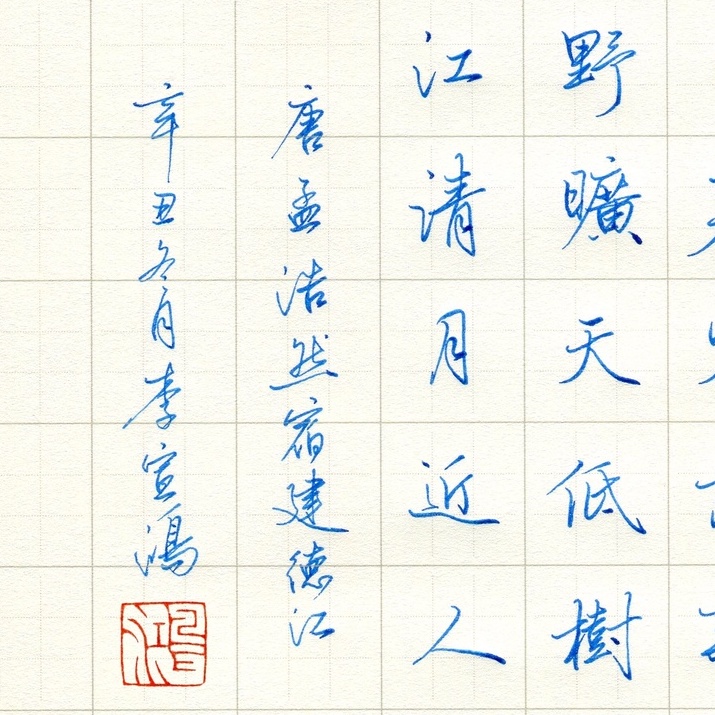 野曠天低樹
江清月近人
唐孟浩然宿建德江
辛丑冬月李宣鴻
鴻